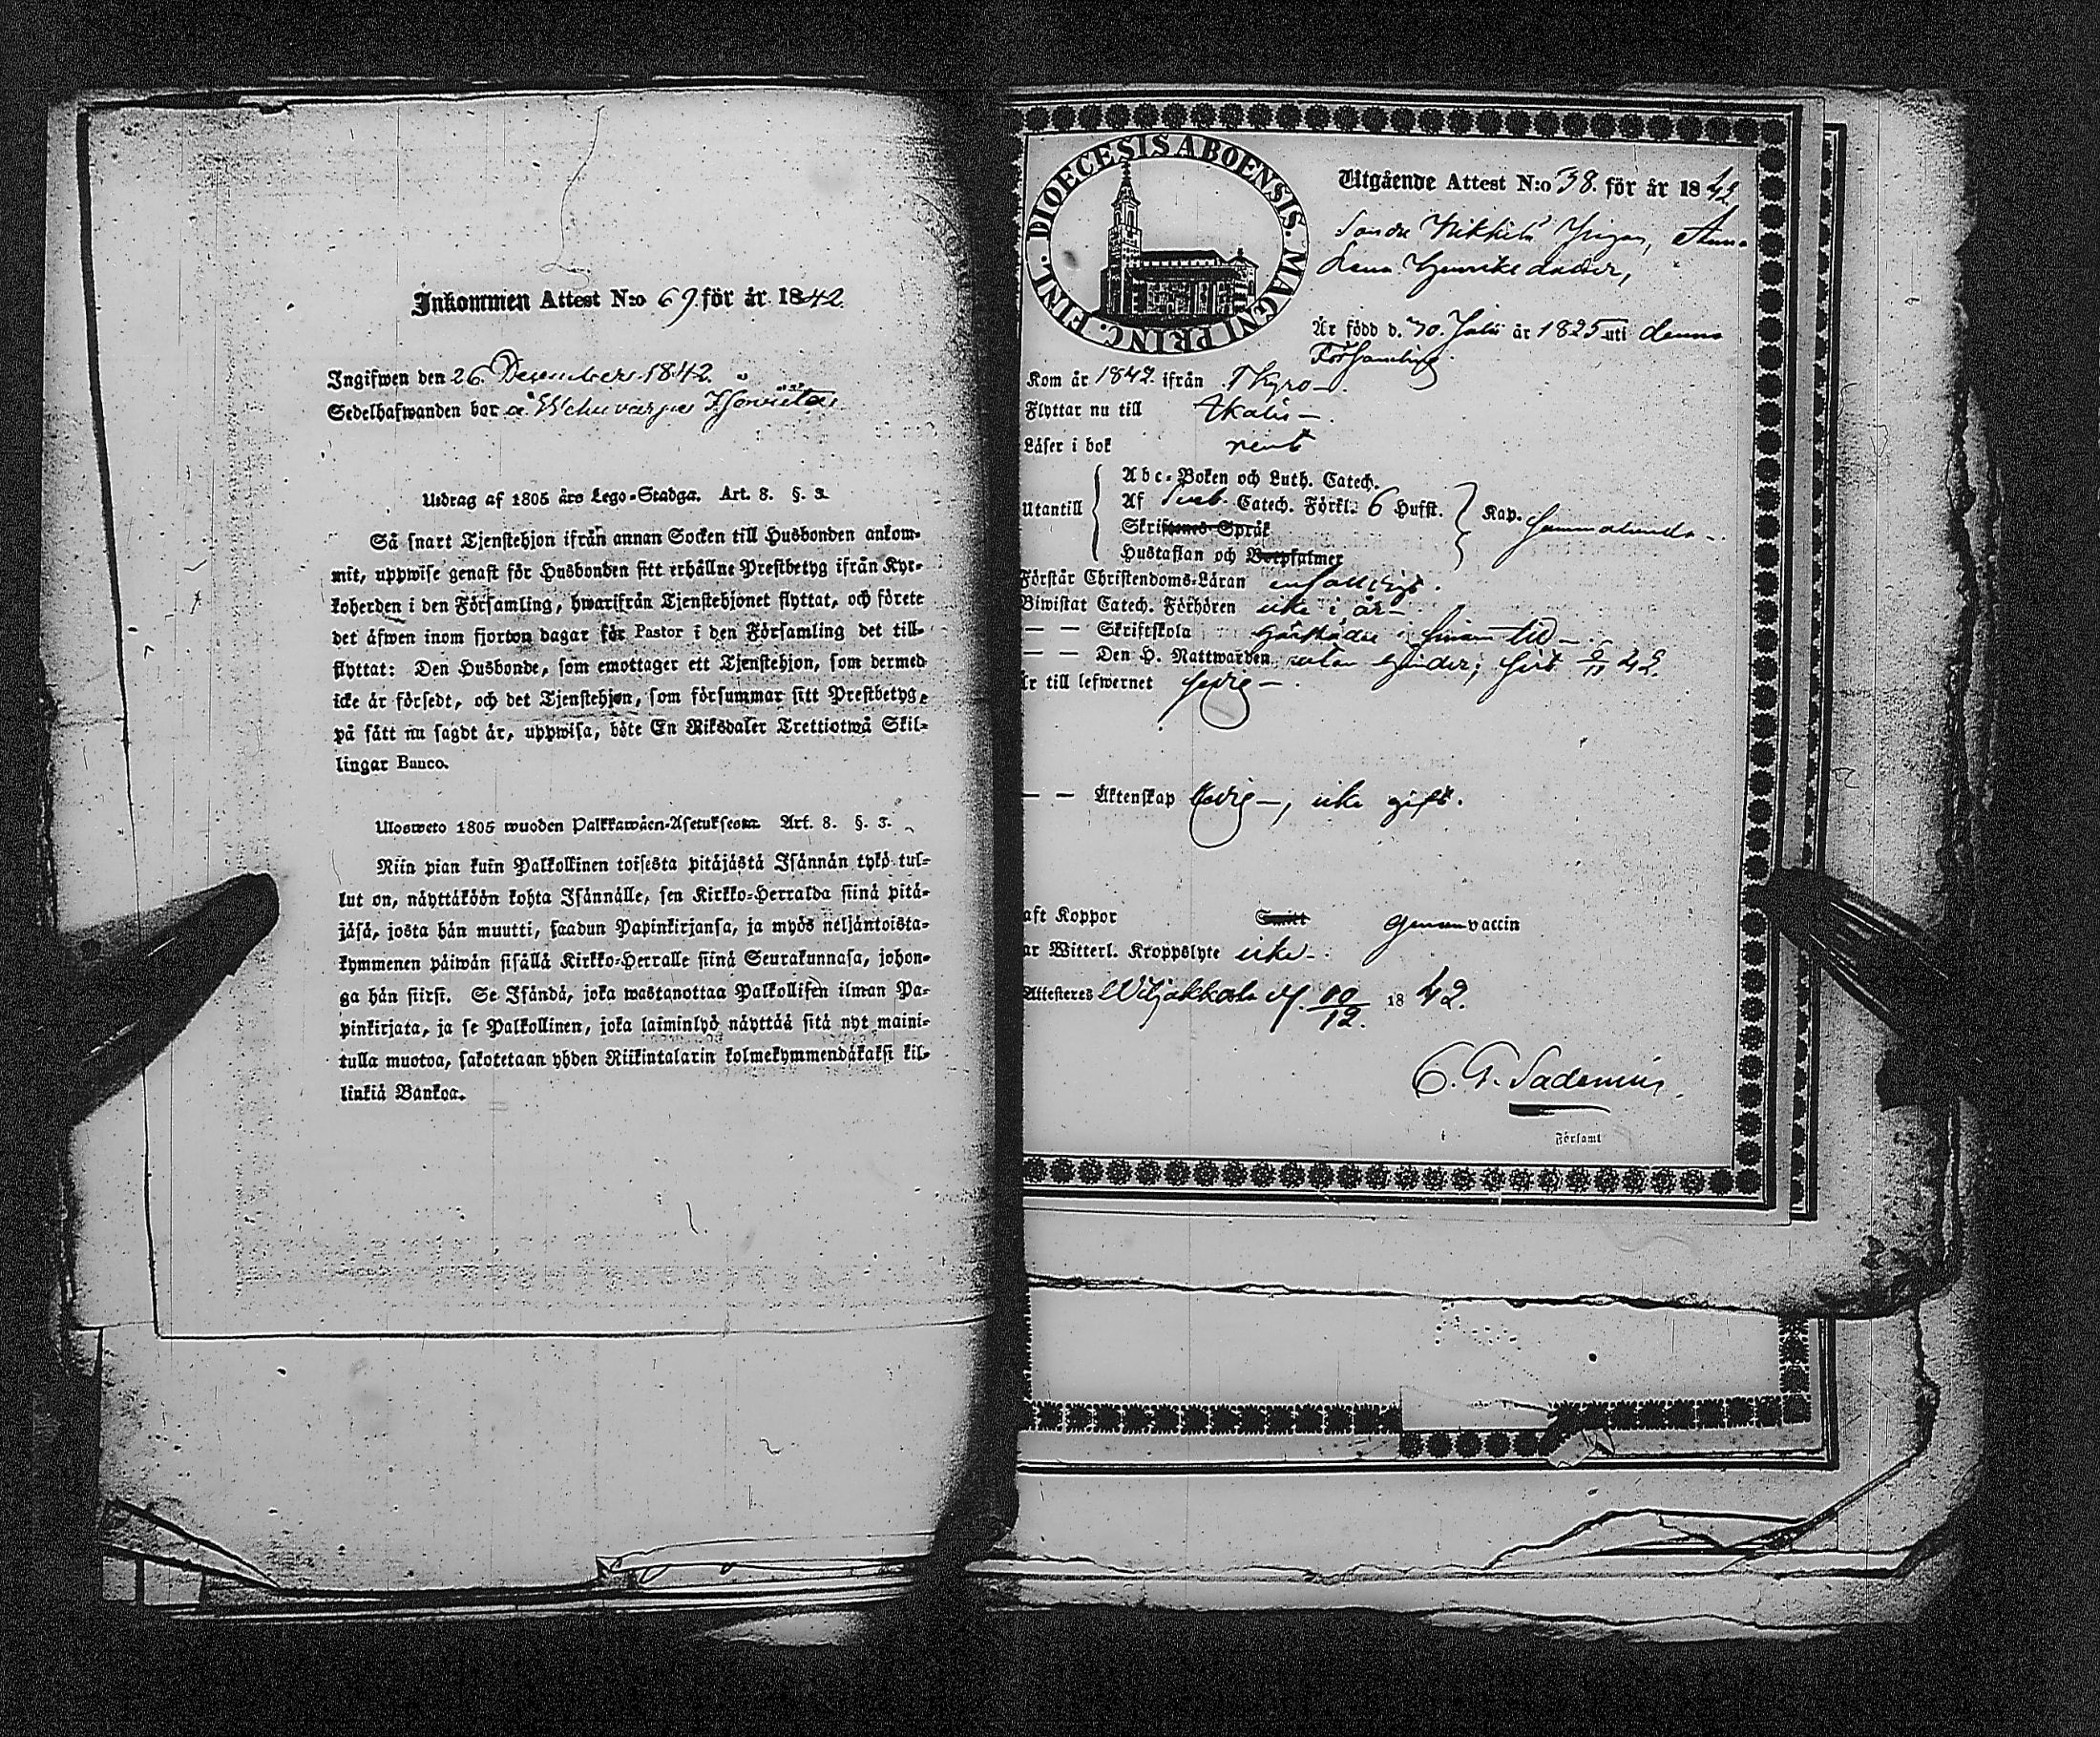 Inkommen Attest N:o 69. för år 1842.
Ingifwen den 26. Decembers 1842.
Sedelhafwanden bor å
Utdrag af 1805 års Lego-Stadga. Art. 8. §. 3.
Så snart Tjenstehjon ifrån annan Socken till Husbonden ankom-
mit, uppwise genast för Husbonden sitt erhållne Prestbetyg ifrån Kyr-
koherden i den Församling, hwarifrån Tjenstehjonet flyttat, och förete
det äfwen inom fjorton dagar för Pastor i den Församling det till-
flyttat: Den Husbonde, som emottager ett Tjenstehjon, som dermed
icke är försedt, och det Tjenstehjon, som försummar sitt Prestbetyg,
på sätt nu sagdt är, uppwisa, böte En Riksdaler Trettiotwå Skil-
lingar Banco.
Ulosweto 1805 wuoden Palkkawäen-Asetuksesta. Art. 8. §. 3.
Niin pian kuin Palkollinen toisesta pitäjästä Isännän tykö tul-
lut on, näyttäköön kohta Isännälle, sen Kirkko-Herralda siinä pitä-
jäsä, josta hän muutti, saadun Papinkirjansa, ja myös neljäntoista-
kymmenen päiwän sisällä Kirkko-Herralle siinä Seurakunnasa, johon-
ga hän siirsi. Se Isändä, joka wastanottaa Palkollisen ilman Pa-
pinkirjata, ja se Palkollinen, joka laiminlyö näyttää sitä nyt maini-
tulla muotoa, sakotetaan yhden Riikintalarin kolmekymmendäkaksi kil-
linkiä Bankoa.
DIOECESIS ABOENSIS. MAGNI PRINC. FINL.
Utgående Attest N:o 38. för år 1842
Anna
Lena Henriksdotter,
Är född d. 30. Julii år 1825 uti denna
Församling.
Kom år 1842. ifrån T Kyro
Flyttar nu till Ikalis
Läser i bok rent
Utantill
Abc-Boken och Luth. Catech.
Af Sveb. Catech. Förkl. 6 Hufst.
Skriftenes Språk
Hustaflan och Botpsalmer
Kap.
Förstår Christendoms-Läran enfalldigt.
Biwistat Catech. Förhören icke i år
— — Skriftskola
— — Den H. Nattwarden utan hinder; sist 6/11 42.
Är till lefwernet fredig
— — Äktenskap ledig, icke gift.
Haft Koppor Smitt genom vaccin
Har Witterl. Kroppslyte icke
Attesteras Wiljakkala d. 20/12. 1842.
C. G. Sadenius
Församl